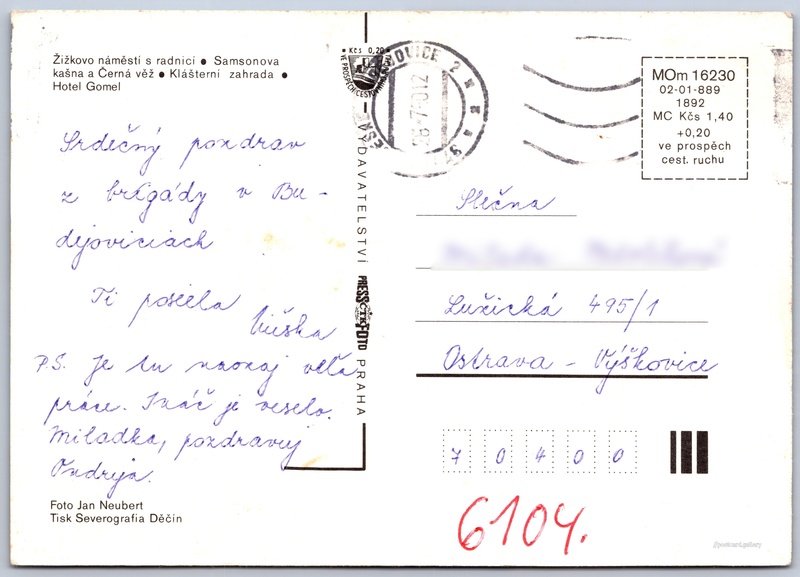 Žižkovo náměstí s radnicí ● Samsonova
kašna a Černá věž ● Klášterní zahrada ●
Hotel Gomel
Srdečný pozdrav
z brigády v Bu-
dejoviciach
Ti posiela
P.S. Je tu naozaj veľa
práce. Ináč je veselo.
Miladka, pozdravuj
Ondreja.
Foto Jan Neubert
Tisk Severografia Děčín
Kčs 0,20
VE PROSPĚCH CESTOVNÍHO
VYDAVATELSTVÍ
PRESSFOTO
ČTK
PRAHA
MOm 16230
02-01-889
1892
MC Kčs 1,40
+0,20
ve prospěch
cest. ruchu
Slečna
Lužická 495/1
Ostrava - Výškovice
7 0 4 0 0
6104.
postcard.gallery